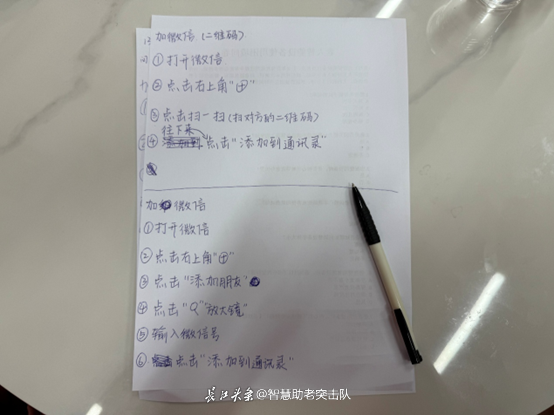 加微信(二维码)
①打开微信
②点击右上角“⊕”
③点击扫一扫(扫对方的二维码)
往下来
④点击“添加到通讯录”
加微信
①打开微信
②点击右上角“⊕”
③点击“添加朋友”
④点击“Q”“放大镜”
⑤输入微信号
⑥点击“添加到通讯录”
长江大学@智慧助老突击队